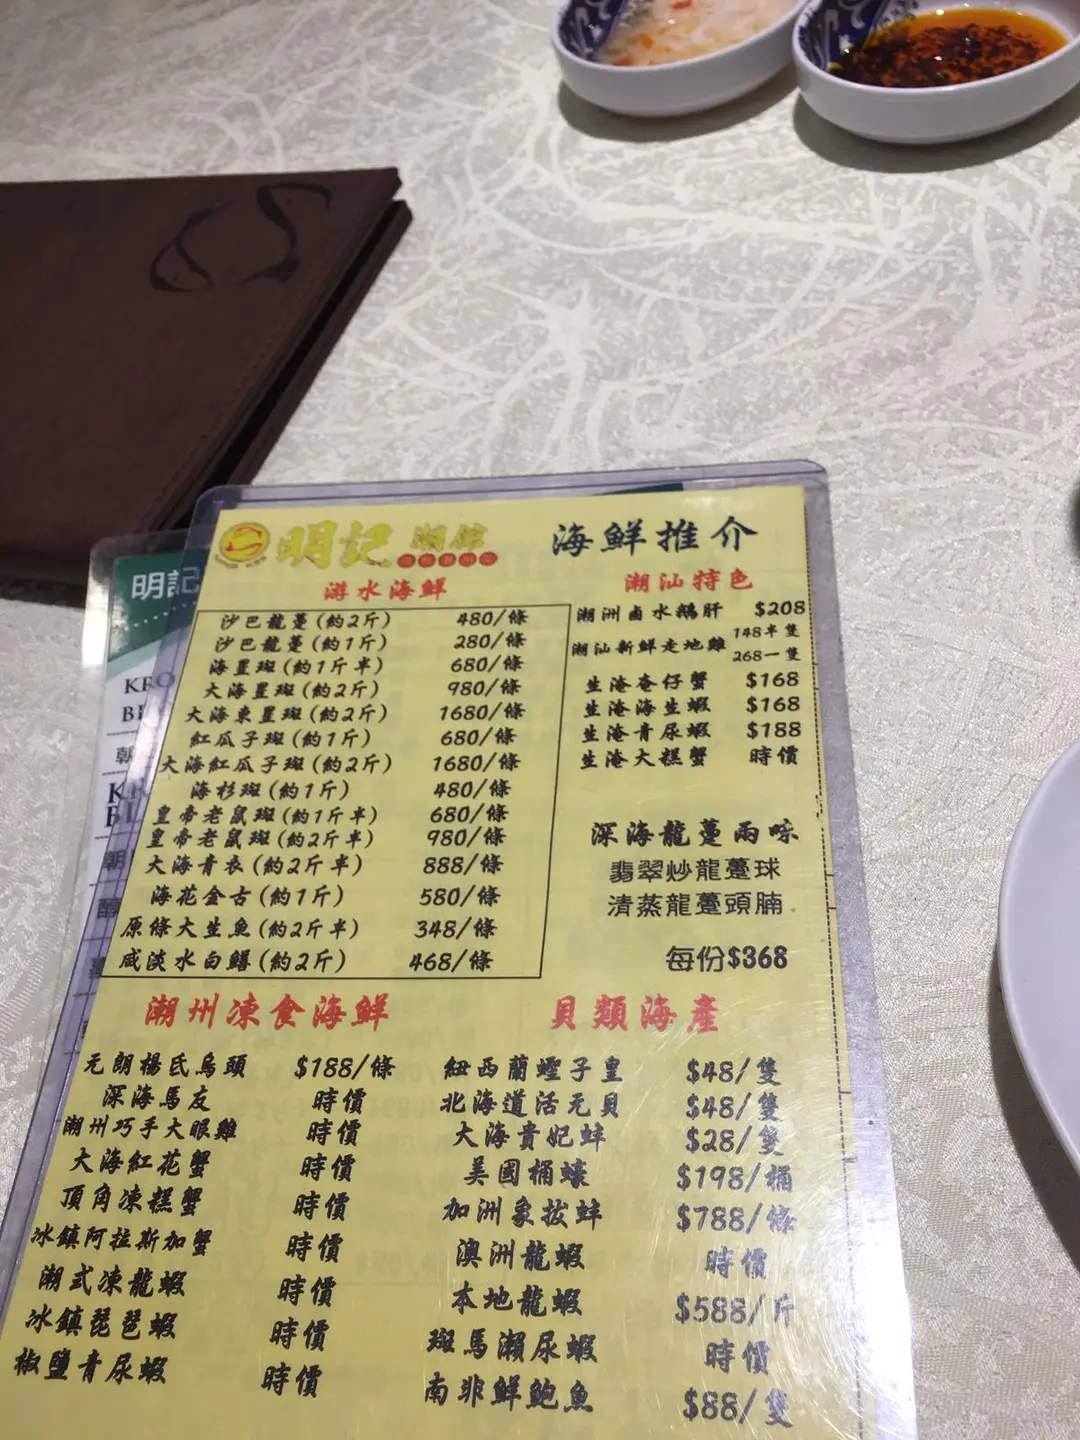 明記潮館
海鮮推介
游水海鮮
沙巴龍躉(約2斤) 480/條
沙巴龍躉(約1斤) 280/條
海星斑(約1斤半) 680/條
大海星斑(約2斤) 980/條
大海東星斑(約2斤) 1680/條
紅瓜子斑(約1斤) 680/條
大海紅瓜子斑(約2斤) 1680/條
海杉斑(約1斤) 480/條
皇帝老鼠斑(約1斤半) 680/條
皇帝老鼠斑(約2斤半) 980/條
大海青衣(約2斤半) 888/條
海花金古(約1斤) 580/條
原條大生魚(約2斤半) 348/條
咸淡水白鱔(約2斤) 468/條
潮汕特色
潮洲鹵水鵝肝 $208
潮汕新鮮走地雞 148半隻
268一隻
生淹奄仔蟹 $168
生淹海生蝦 $168
生淹青尿蝦 $188
生淹大糕蟹 時價
深海龍躉兩味
翡翠炒龍躉球
清蒸龍躉頭腩
每份$368
潮州凍食海鮮
元朗楊氏烏頭 $188/條
深海馬友 時價
潮州巧手大眼雞 時價
大海紅花蟹 時價
頂角凍糕蟹 時價
冰鎮阿拉斯加蟹 時價
潮式凍龍蝦 時價
冰鎮琵琶蝦 時價
椒鹽青尿蝦 時價
貝類海產
紐西蘭蟶子皇 $48/隻
北海道活元貝 $48/隻
大海貴妃蚌 $28/隻
美國桶蠔 $198/桶
加洲象拔蚌 $788/條
澳洲龍蝦 時價
本地龍蝦 $588/斤
斑馬瀨尿蝦 時價
南非鮮鮑魚 $88/隻
明記
KRO
朝